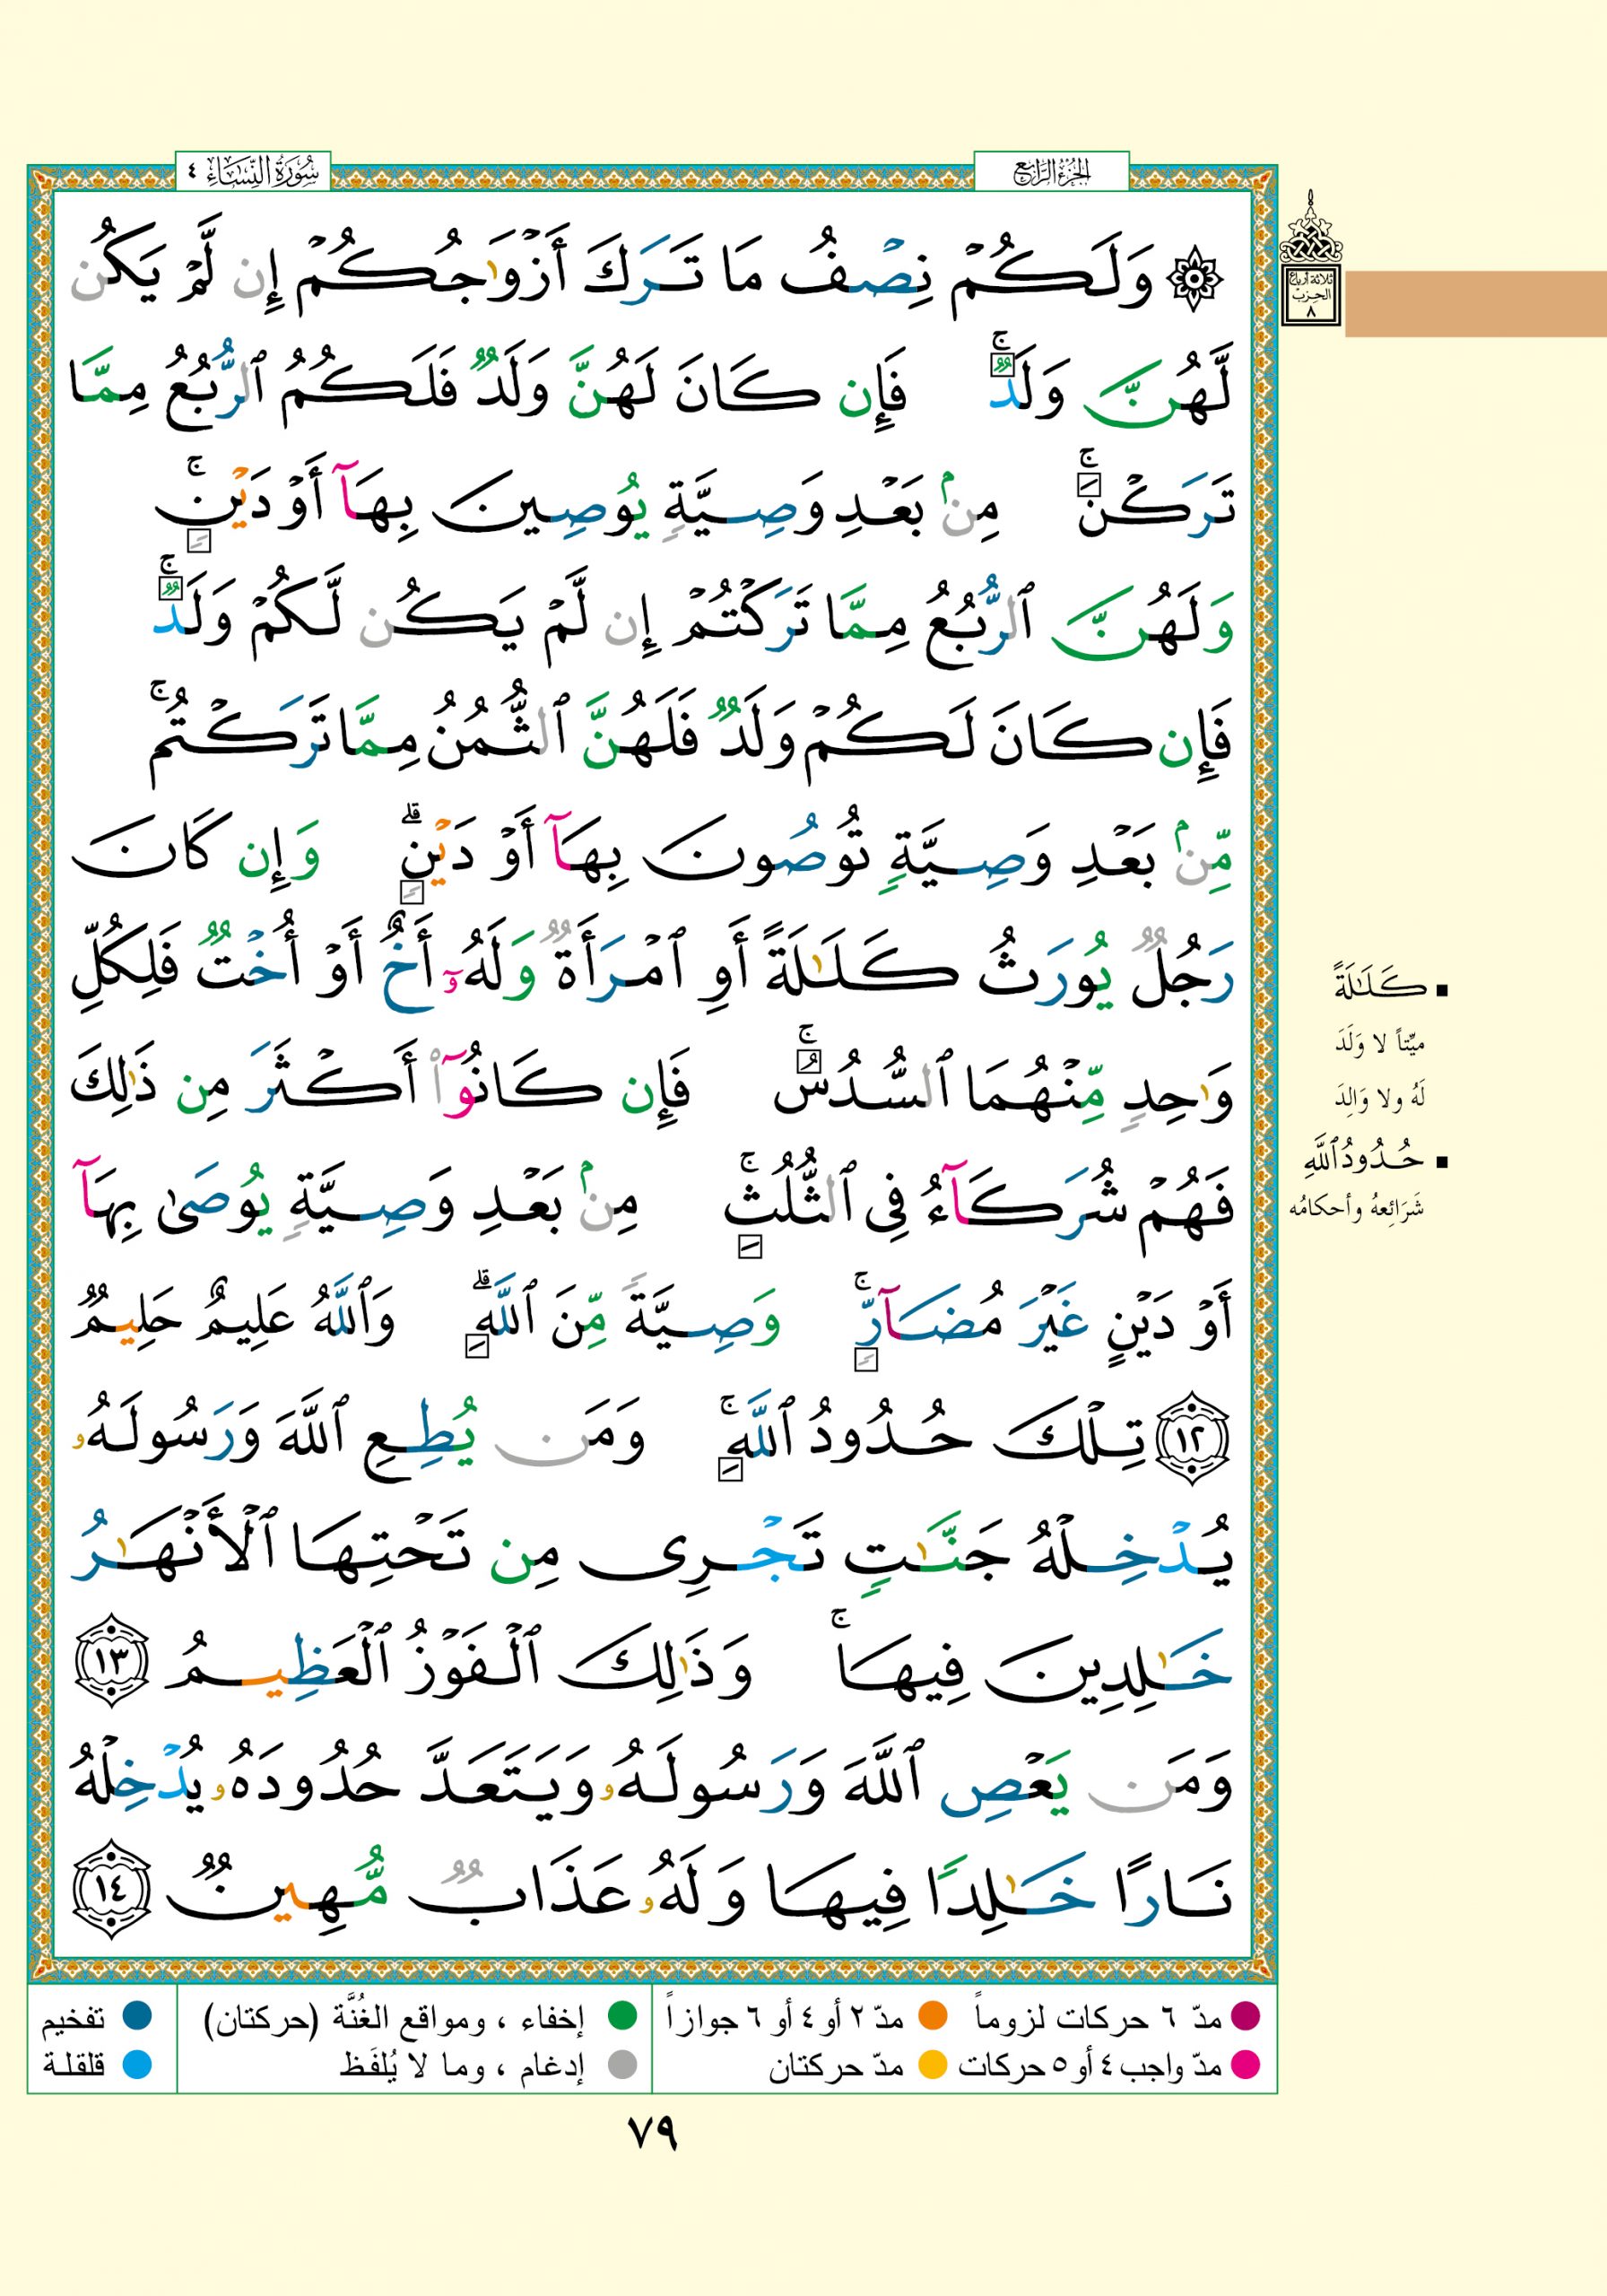 الجزء الرابع
سورة النساء ٤
ثلاثة أرباع
الحزب
٨
۞ وَلَكُمْ نِصْفُ مَا تَرَكَ أَزْوَٰجُكُمْ إِن لَّمْ يَكُن
لَّهُنَّ وَلَدٌ ۚ فَإِن كَانَ لَهُنَّ وَلَدٌ فَلَكُمُ ٱلرُّبُعُ مِمَّا
تَرَكْنَ ۚ مِنۢ بَعْدِ وَصِيَّةٍ يُوصِينَ بِهَآ أَوْ دَيْنٍ ۚ
وَلَهُنَّ ٱلرُّبُعُ مِمَّا تَرَكْتُمْ إِن لَّمْ يَكُن لَّكُمْ وَلَدٌ ۚ
فَإِن كَانَ لَكُمْ وَلَدٌ فَلَهُنَّ ٱلثُّمُنُ مِمَّا تَرَكْتُم ۚ
مِّنۢ بَعْدِ وَصِيَّةٍ تُوصُونَ بِهَآ أَوْ دَيْنٍ ۗ وَإِن كَانَ
رَجُلٌ يُورَثُ كَلَـٰلَةً أَوِ ٱمْرَأَةٌ وَلَهُۥٓ أَخٌ أَوْ أُخْتٌ فَلِكُلِّ
وَٰحِدٍ مِّنْهُمَا ٱلسُّدُسُ ۚ فَإِن كَانُوٓا۟ أَكْثَرَ مِن ذَٰلِكَ
فَهُمْ شُرَكَآءُ فِى ٱلثُّلُثِ ۚ مِنۢ بَعْدِ وَصِيَّةٍ يُوصَىٰ بِهَآ
أَوْ دَيْنٍ غَيْرَ مُضَآرٍّ ۚ وَصِيَّةً مِّنَ ٱللَّهِ ۗ وَٱللَّهُ عَلِيمٌ حَلِيمٌ
١٢ تِلْكَ حُدُودُ ٱللَّهِ ۚ وَمَن يُطِعِ ٱللَّهَ وَرَسُولَهُۥ
يُدْخِلْهُ جَنَّـٰتٍ تَجْرِى مِن تَحْتِهَا ٱلْأَنْهَـٰرُ
خَـٰلِدِينَ فِيهَا ۚ وَذَٰلِكَ ٱلْفَوْزُ ٱلْعَظِيمُ ١٣
وَمَن يَعْصِ ٱللَّهَ وَرَسُولَهُۥ وَيَتَعَدَّ حُدُودَهُۥ يُدْخِلْهُ
نَارًا خَـٰلِدًا فِيهَا وَلَهُۥ عَذَابٌ مُّهِينٌ ١٤
▪ كَلَـٰلَةً
ميِّتاً لا وَلَدَ
لَهُ ولا وَالِدَ
▪ حُدُودُ ٱللَّهِ
شَرَائِعهُ وأحكامُه
● مدّ ٦ حركات لزوماً ● مدّ ٢ أو ٤ أو ٦ جوازاً ● إخفاء ، ومواقع الغُنَّة (حركتان) ● تفخيم
● مدّ واجب ٤ أو ٥ حركات ● مدّ حركتان ● إدغام ، وما لا يُلفَظ ● قلقلة
٧٩